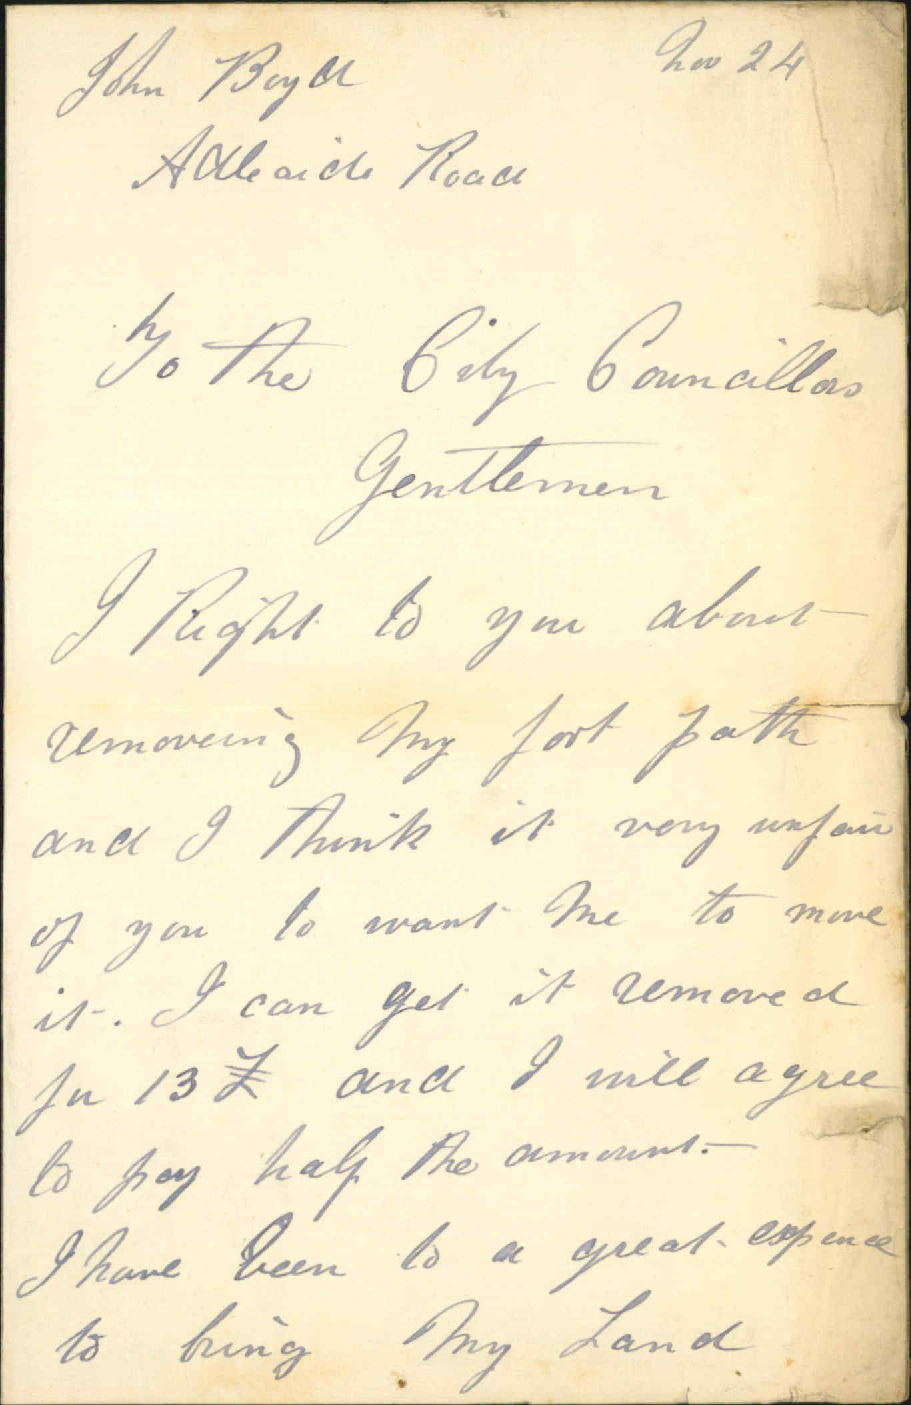 John Boyd Nov 24
Adleaide Road
To The City Councillors
Gentlemen
I Right to you about
removeing My foot path
and I think it very unfair
of you to want Me to move
it. I can get it removed
for 13 £ and I will agree
to pay half the amount.
I have been to a great expence
to bring My Land